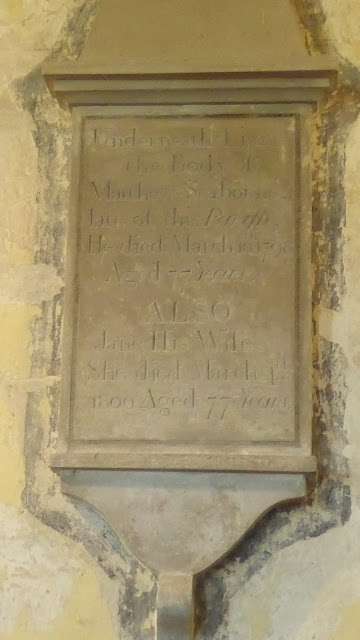 Underneath Lies
the Body of
Matthew Seaborne
late of this Parish
He died March 1798
Aged 77 Years
ALSO
Jane His Wife
She died March
1800 Aged 77 Years